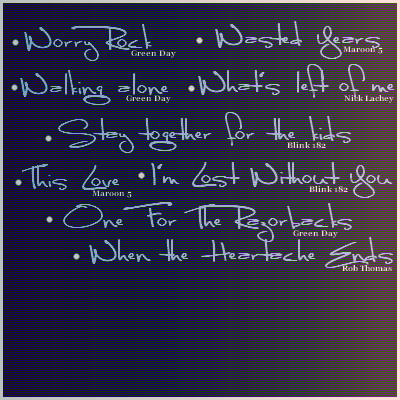 • Worry Rock • Wasted Years
Green Day Maroon 5
• Walking alone • What's left of me
Green Day Nick Lachey
• Stay together for the kids
Blink 182
• This Love • I'm Lost Without You
Maroon 5 Blink 182
• One For The Razorbacks
Green Day
• When the Heartache Ends
Rob Thomas